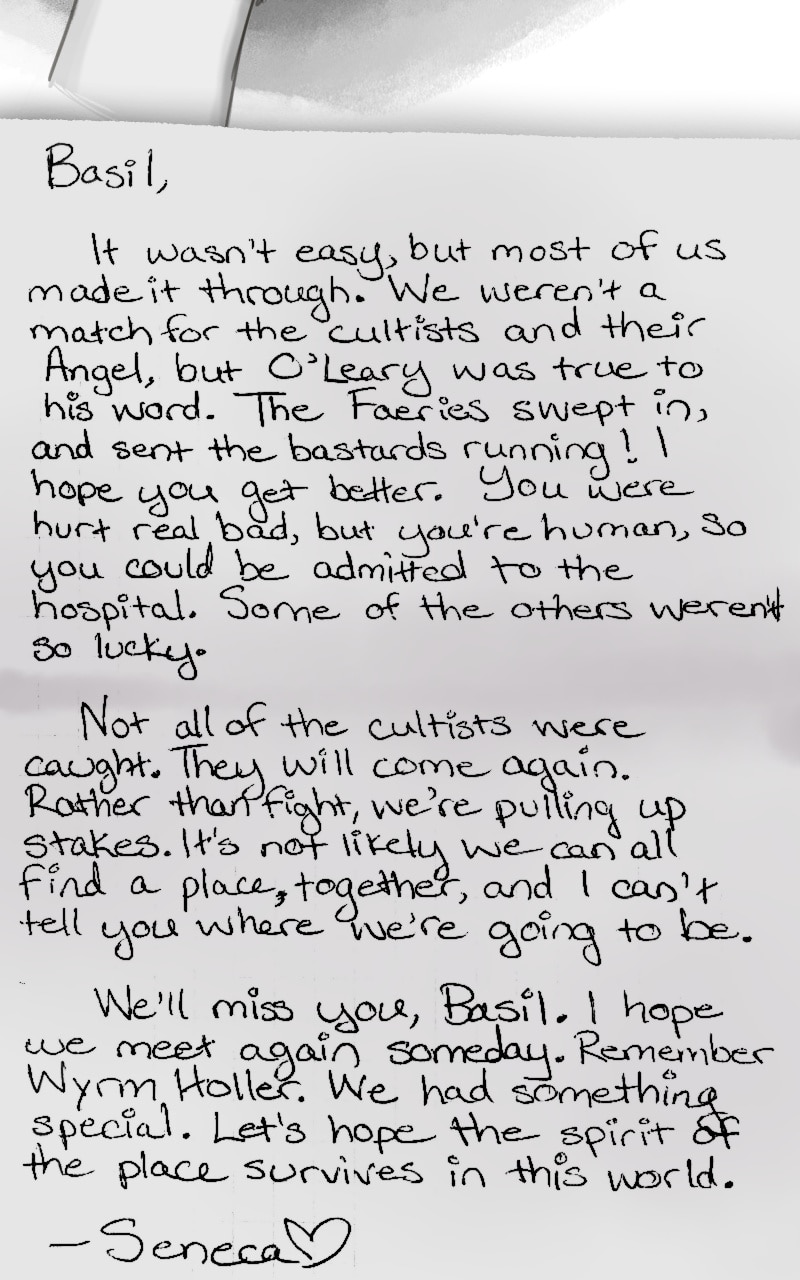 Basil,
It wasn't easy, but most of us
made it through. We weren't a
match for the cultists and their
Angel, but O'Leary was true to
his word. The Faeries swept in,
and sent the bastards running! I
hope you get better. You were
hurt real bad, but you're human, so
you could be admitted to the
hospital. Some of the others weren't
so lucky.
Not all of the cultists were
caught. They will come again.
Rather than fight, we're pulling up
stakes. It's not likely we can all
find a place, together, and I can't
tell you where we're going to be.
We'll miss you, Basil. I hope
we meet again someday. Remember
Wyrm Holler. We had something
special. Let's hope the spirit of
the place survives in this world.
—Seneca♡